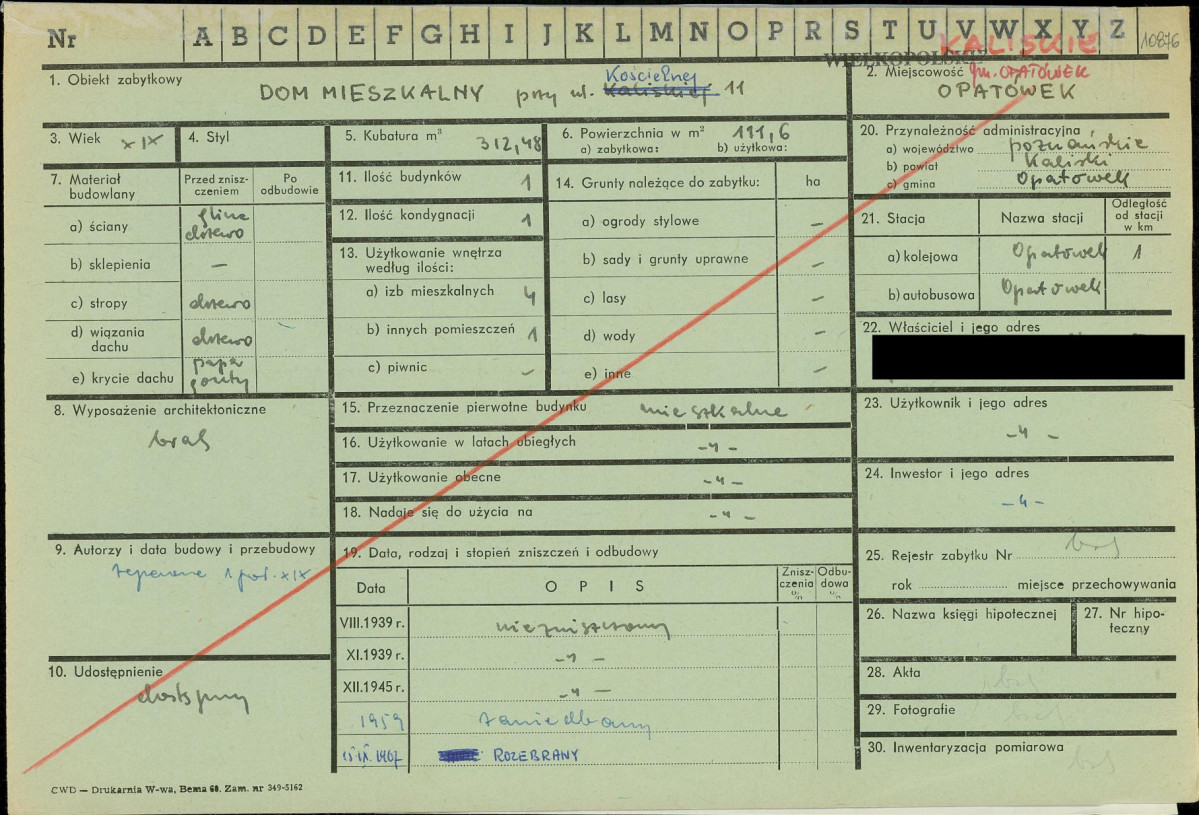 Nr A B C D E F G H I J K L M N O P R S T U V W X Y Z 10876
WIELKOPOLSKIE KALISKIE
1. Obiekt zabytkowy
DOM MIESZKALNY przy ul. Kaliskiej Kościelnej 11
2. Miejscowość gm. OPATÓWEK
OPATÓWEK
3. Wiek XIX
4. Styl
5. Kubatura m³ 312,48
6. Powierzchnia w m² 111,6
a) zabytkowa: b) użytkowa:
7. Materiał budowlany
Przed zniszczeniem
Po odbudowie
a) ściany glina drzewo
b) sklepienia —
c) stropy drzewo
d) wiązania dachu drzewo
e) krycie dachu papa gonty
8. Wyposażenie architektoniczne
brak
9. Autorzy i data budowy i przebudowy
1 poł. XIX
10. Udostępnienie
dostępny
11. Ilość budynków 1
12. Ilość kondygnacji 1
13. Użytkowanie wnętrza według ilości:
a) izb mieszkalnych 4
b) innych pomieszczeń 1
c) piwnic —
14. Grunty należące do zabytku: ha
a) ogrody stylowe —
b) sady i grunty uprawne —
c) lasy —
d) wody —
e) inne —
15. Przeznaczenie pierwotne budynku mieszkalne
16. Użytkowanie w latach ubiegłych -„-
17. Użytkowanie obecne -„-
18. Nadaje się do użycia na -„-
19. Data, rodzaj i stopień zniszczeń i odbudowy
Data OPIS Zniszczenia % Odbudowa %
VIII.1939 r. niezniszczony
XI.1939 r. -„-
XII.1945 r. -„-
1959 zaniedbany
ROZEBRANY
20. Przynależność administracyjna
a) województwo poznańskie
b) powiat Kaliski
c) gmina Opatówek
21. Stacja Nazwa stacji Odległość od stacji w km
a) kolejowa Opatówek 1
b) autobusowa Opatówek
22. Właściciel i jego adres
23. Użytkownik i jego adres
-„-
24. Inwestor i jego adres
-„-
25. Rejestr zabytku Nr brak
rok miejsce przechowywania
26. Nazwa księgi hipotecznej
27. Nr hipoteczny
28. Akta brak
29. Fotografie brak
30. Inwentaryzacja pomiarowa
brak
CWD — Drukarnia W-wa, Bema 60. Zam. nr 349-5162